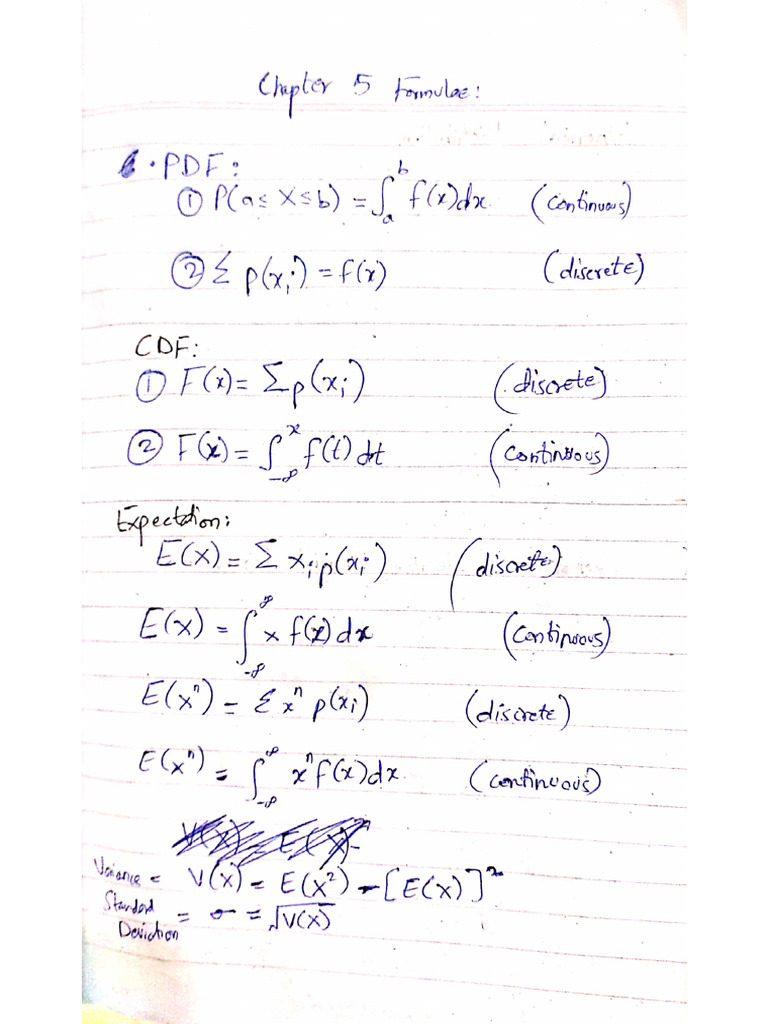 Chapter 5 Formulae:
• PDF:
① P(a ≤ X ≤ b) = ∫_a^b f(x)dx (continuous)
② Σ p(x_i) = f(x) (discrete)
CDF:
① F(x) = Σp(x_i) (discrete)
② F(x) = ∫_{-∞}^x f(t) dt (continuous)
Expectation:
E(X) = Σ x_i p(x_i) (discrete)
E(X) = ∫_{-∞}^∞ x f(x) dx (continuous)
E(X^n) = Σ x^n p(x_i) (discrete)
E(X^n) = ∫_{-∞}^∞ x^n f(x)dx (continuous)
Variance = V(X) = E(X^2) - [E(X)]^2
Standard Deviation = σ = √V(X)